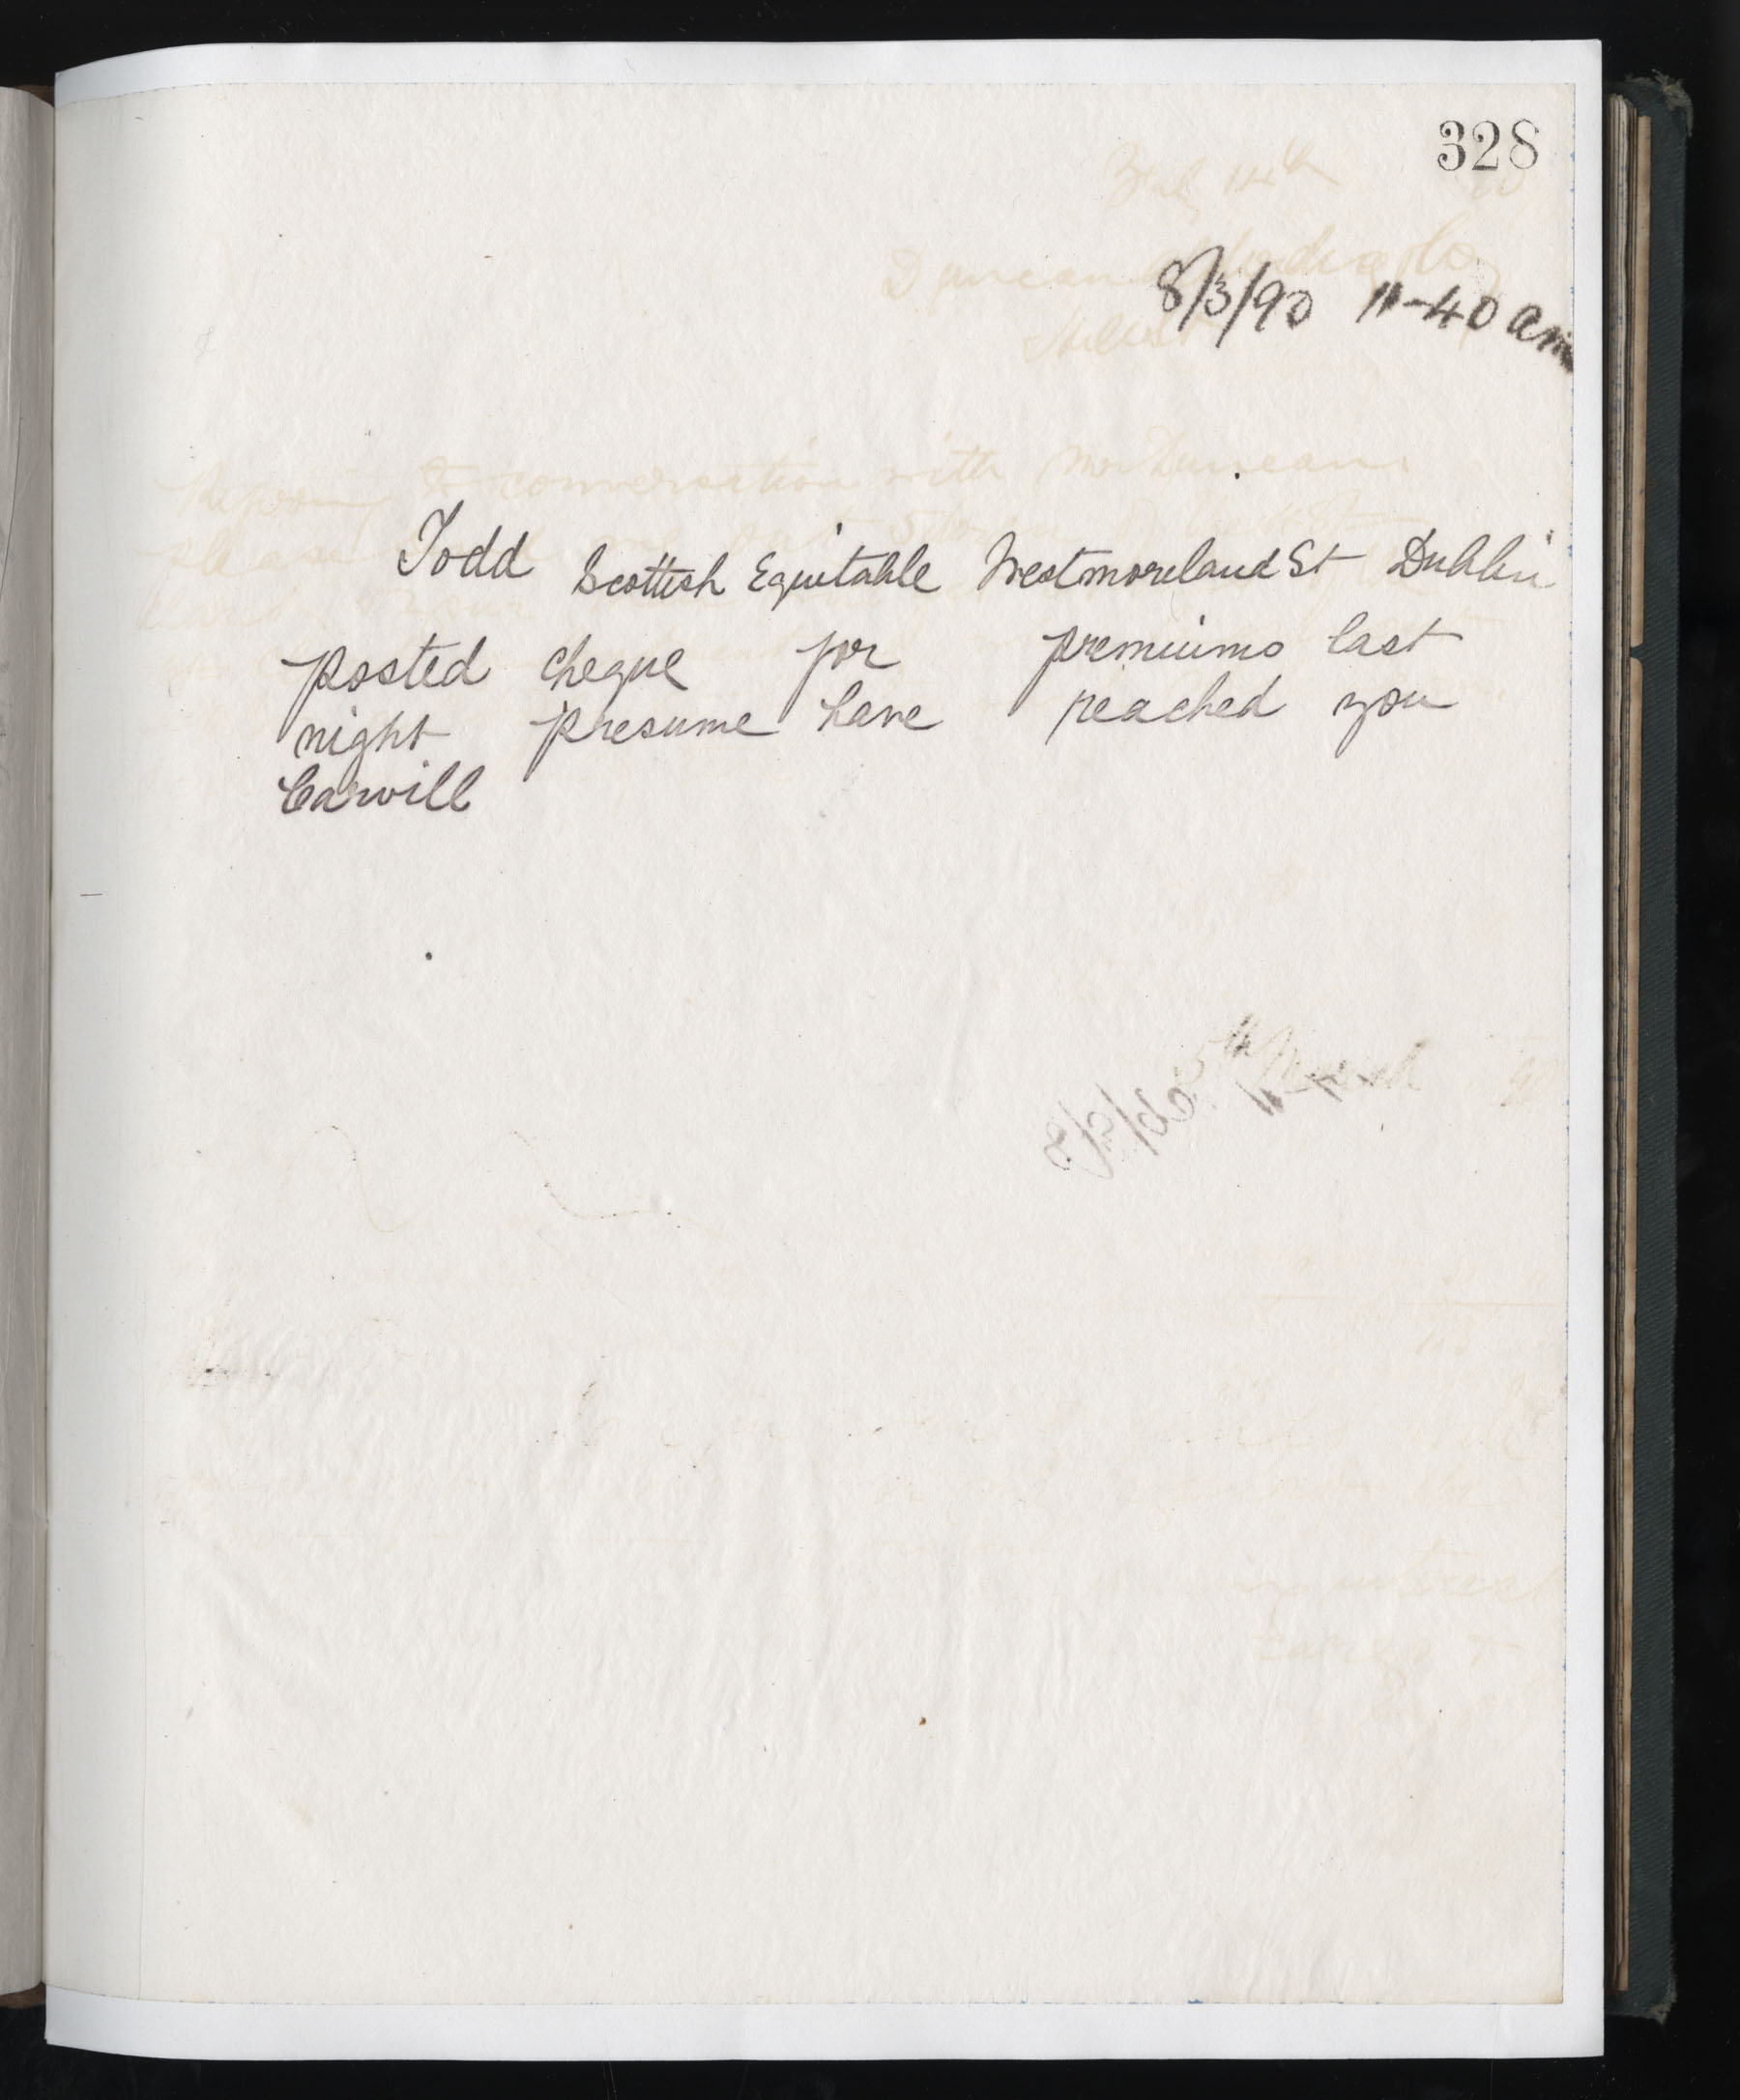 328
8/3/90 11-40 am
Todd Scottish Equitable Westmoreland St Dublin
posted cheque for premiums last
night presume have reached you
Carvill